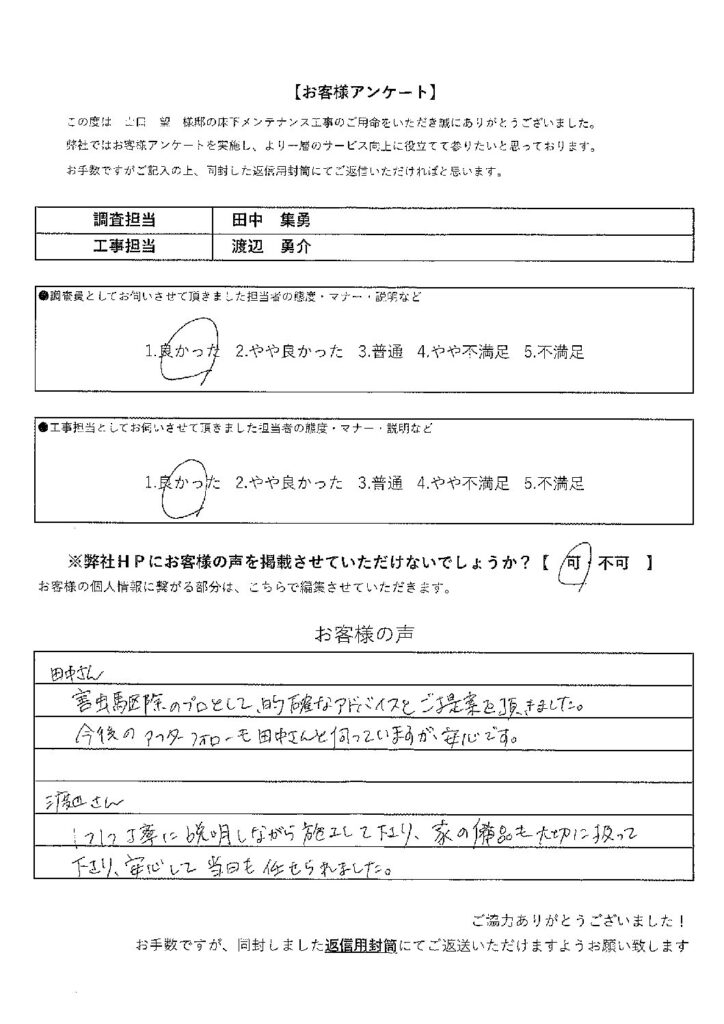 【お客様アンケート】
この度は 山口 望 様邸の床下メンテナンス工事のご用命をいただき誠にありがとうございました。
弊社ではお客様アンケートを実施し、より一層のサービス向上に役立てて参りたいと思っております。
お手数ですがご記入の上、同封した返信用封筒にてご返信いただければと思います。
調査担当 田中 集勇
工事担当 渡辺 勇介
●調査員としてお伺いさせて頂きました担当者の態度・マナー・説明など
1.良かった 2.やや良かった 3.普通 4.やや不満足 5.不満足
●工事担当としてお伺いさせて頂きました担当者の態度・マナー・説明など
1.良かった 2.やや良かった 3.普通 4.やや不満足 5.不満足
※弊社ＨＰにお客様の声を掲載させていただけないでしょうか？【 可・不可 】
お客様の個人情報に繋がる部分は、こちらで編集させていただきます。
お客様の声
田中さん
害虫駆除のプロとして、的確なアドバイスとご提案を頂きました。
今後のアフターフォローも田中さんと伺っていますが、安心です。
渡辺さん
1つ1つ丁寧に説明しながら施工して下さり、家の備品も大切に扱って
下さり、安心して当日も任せられました。
ご協力ありがとうございました！
お手数ですが、同封しました返信用封筒にてご返送いただけますようお願い致します